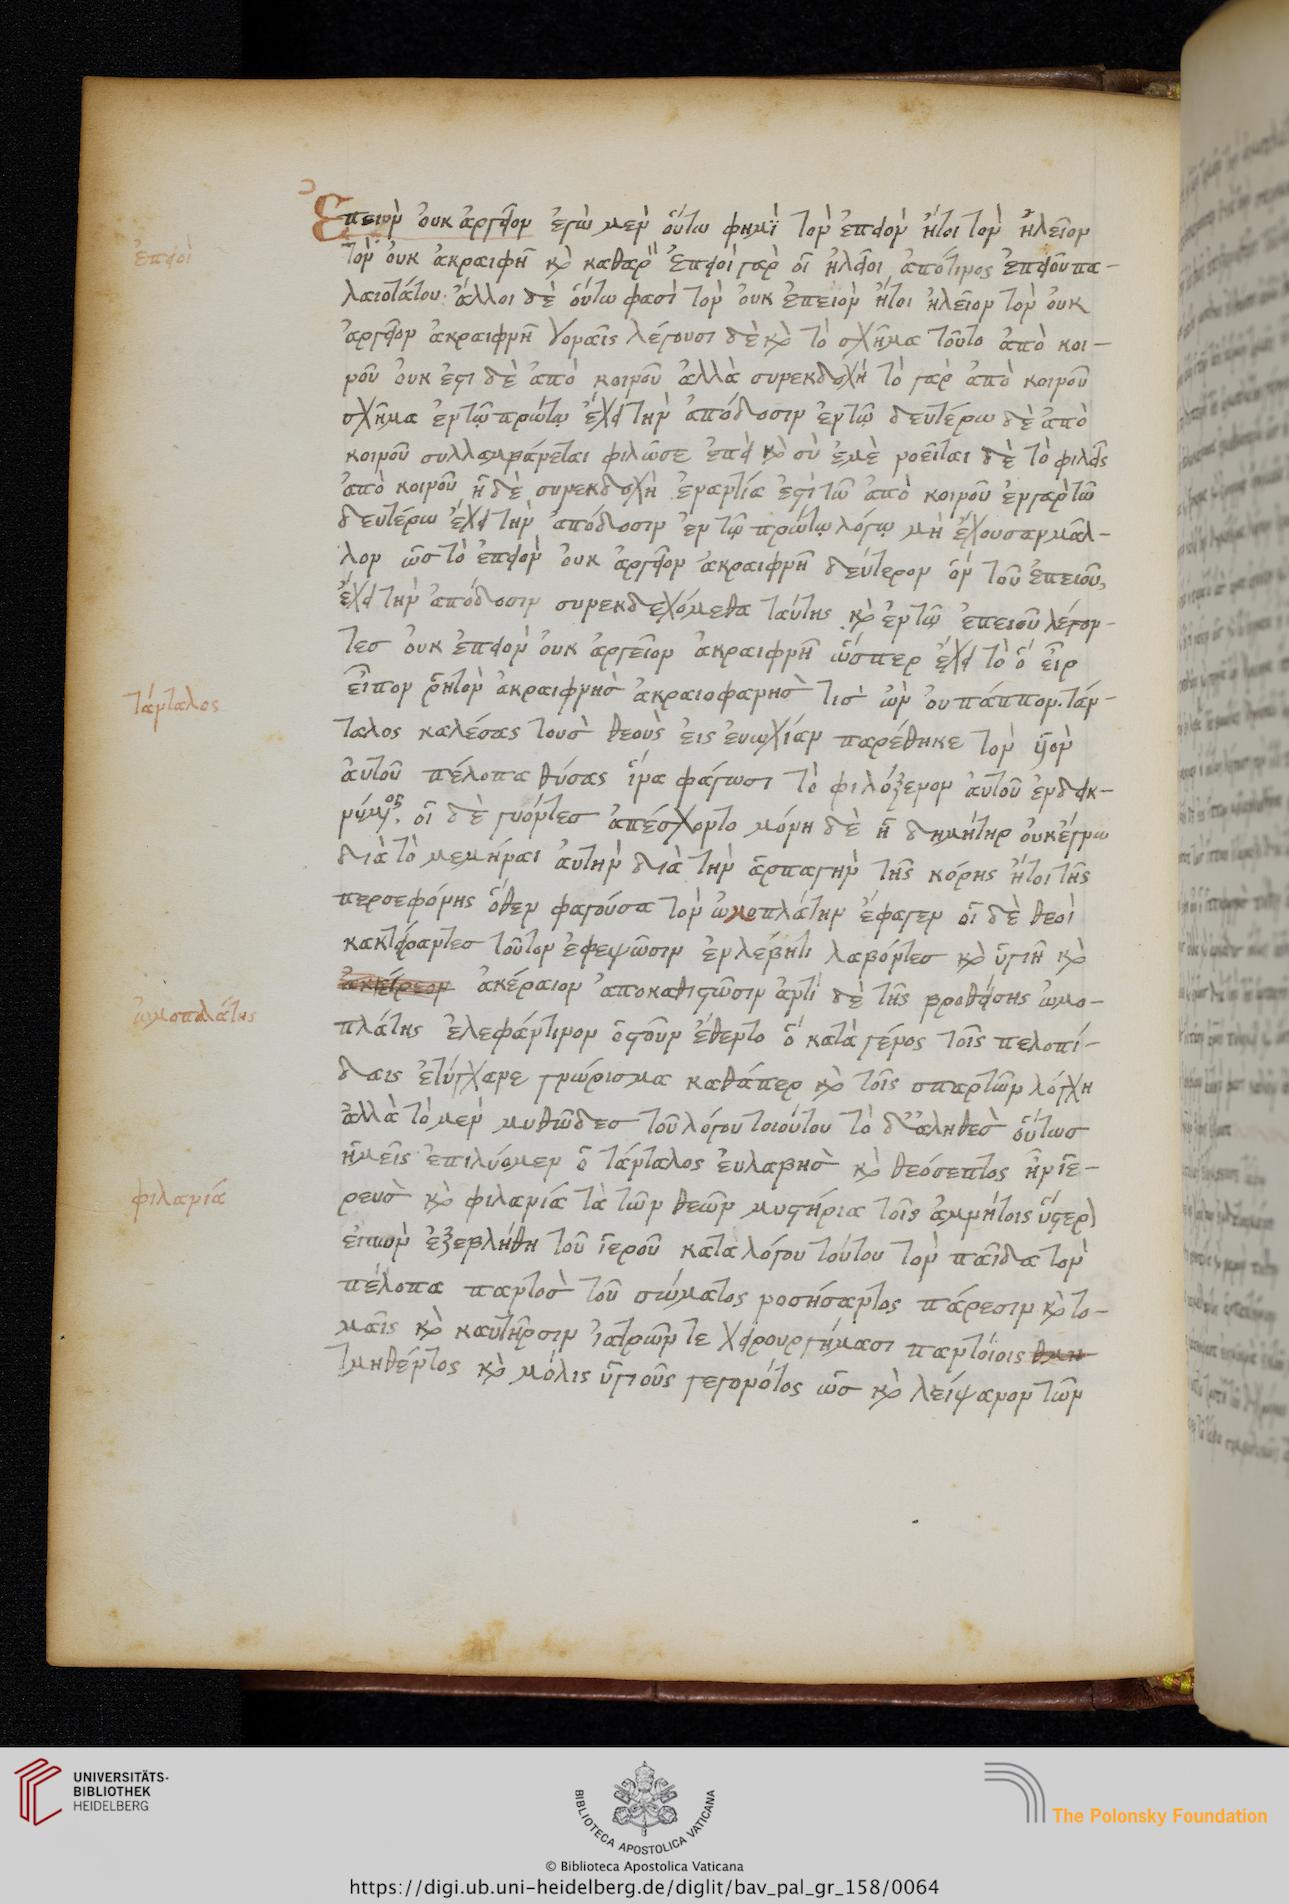 Ἐπειὸν οὐκ ἀργεῖον ἐγὼ μὲν οὕτω φημὶ τὸν ἐπειὸν ἤτοι τὸν ἠλεῖον
ἐπειοὶ
τὸν οὐκ ἀκραιφνῆ καὶ καθαρὸν Ἐπειοὶ γὰρ οἱ ἠλεῖοι ἀπό τινος ἐπειοῦ πα-
λαιοτάτου· ἄλλοι δὲ οὕτω φασὶ τὸν οὐκ ἐπειὸν ἤτοι ἠλεῖον τὸν οὐκ
ἀργεῖον ἀκραιφνῆ γοναῖς λέγουσι δὲ καὶ τὸ σχῆμα τοῦτο ἀπὸ κοι-
νοῦ οὐκ ἔστι δὲ ἀπὸ κοινοῦ ἀλλὰ συνεκδοχή τὸ γὰρ ἀπὸ κοινοῦ
σχῆμα ἐν τῷ πρώτῳ ἔχει τὴν ἀπόδοσιν ἐν τῷ δευτέρω δὲ ἀπὸ
κοινοῦ συλλαμβάνεται φιλῶ σε ἐπεὶ καὶ σὺ ἐμὲ νοεῖται δὲ τὸ φιλεῖς
ἀπὸ κοινοῦ ἡ δὲ συνεκδοχὴ ἐναντία ἐστὶ τῶ ἀπὸ κοινοῦ ἐν γὰρ τῶ
δευτέρω ἔχει τὴν ἀπόδοσιν ἐν τῷ πρώτῳ λόγῳ μὴ ἔχουσαν μᾶλ-
λον ὡς τὸ ἐπειὸν οὐκ ἀργεῖον ἀκραιφνῆ δεύτερον ὂν τοῦ ἐπειοῦ,
ἔχει τὴν ἀπόδοσιν συνεκδεχόμεθα ταύτης καὶ ἐν τῷ ἐπειοῦ λέγον-
τες οὐκ ἐπειὸν οὐκ ἀργεῖον ἀκραιφνῆ ὥσπερ ἔχει τὸ ὅ εἶν
τάνταλος
εἶπον ῥητὸν ἀκραιφνὴς ἀκραιοφανὴς τὶς ὢν οὗ πάππον· τάν-
ταλος καλέσας τοὺς θεοὺς εἰς εὐωχίαν παρέθηκε τὸν υἱὸν
αὐτοῦ πέλοπα θύσας ἵνα φάγωσι τὸ φιλόξενον αὐτοῦ ἐνδεικ-
νύμενος, οἱ δὲ γνόντες ἀπέσχοντο μόνη δὲ ἡ δημήτηρ οὐκ ἔγνω
διὰ τὸ μεμῆναι αὐτὴν διὰ τὴν ἁρπαγὴν τῆς κόρης ἤτοι τῆς
περσεφόνης ὅθεν φαγοῦσα τὸν ὠμοπλάτην ἔφαγεν οἱ δὲ θεοὶ
κακτείναντες τοῦτον ἐφεψῶσιν ἐν λέβητι λαβόντες καὶ ὑγιῆ καὶ
ἀκέραιον ἀποκαθιστῶσιν ἀντὶ δὲ τῆς βρωθείσης ὠμο-
ὠμοπλάτης
πλάτης ἐλεφάντινον ὀστοῦν ἔθεντο ὃ κατὰ γένος τοῖς πελοπί-
δαις ἐτύγχανε γνώρισμα καθάπερ καὶ τοῖς σπαρτῶν λόγχη
ἀλλὰ τὸ μὲν μυθῶδες τοῦ λόγου τοιούτου τὸ δ' ἀληθὲς οὕτως
ἡμεῖς ἐπιλύομεν ὁ τάνταλος εὐλαβὴς καὶ θεόσεπτος ἦν ἱε-
φιλανία
ρεὺς καὶ φιλανία τὰ τῶν θεῶν μυστήρια τοῖς ἀμυήτοις ὕστερον
ἐξεβλήθη τοῦ ἱεροῦ κατὰ λόγου τούτου τὸν παῖδα τὸν
πέλοπα παντὸς τοῦ σώματος νοσήσαντος πάρεσιν καὶ το-
μαῖς καὶ καυτῆρσιν ἰατρῶν τε χειρουργήμασι παντοίοις
τμηθέντος καὶ μόλις ὑγιοῦς γεγονότος ὡς καὶ λείψανον τῶν
UNIVERSITÄTS-
BIBLIOTHEK
HEIDELBERG
BIBLIOTECA APOSTOLICA VATICANA
The Polonsky Foundation
© Biblioteca Apostolica Vaticana
https://digi.ub.uni-heidelberg.de/diglit/bav_pal_gr_158/0064